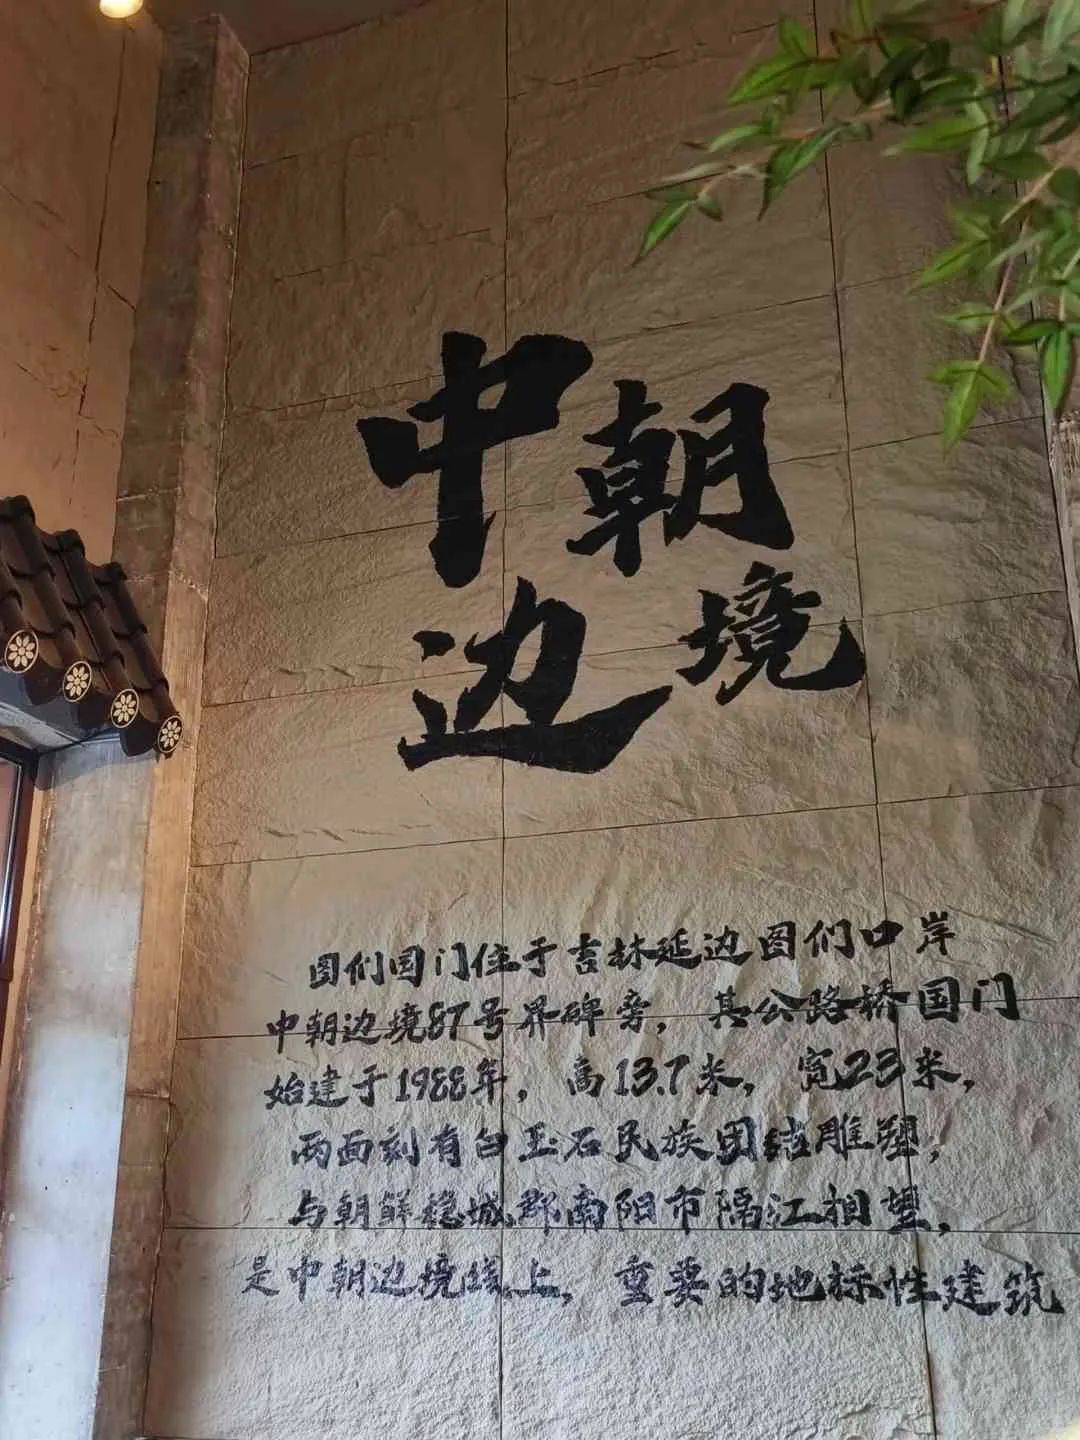 中朝
边境
图们国门位于吉林延边图们口岸
中朝边境87号界碑旁，其公路桥国门
始建于1988年，高13.7米，宽23米，
两面刻有白玉石民族团结雕塑，
与朝鲜稳城郡南阳市隔江相望，
是中朝边境线上，重要的地标性建筑